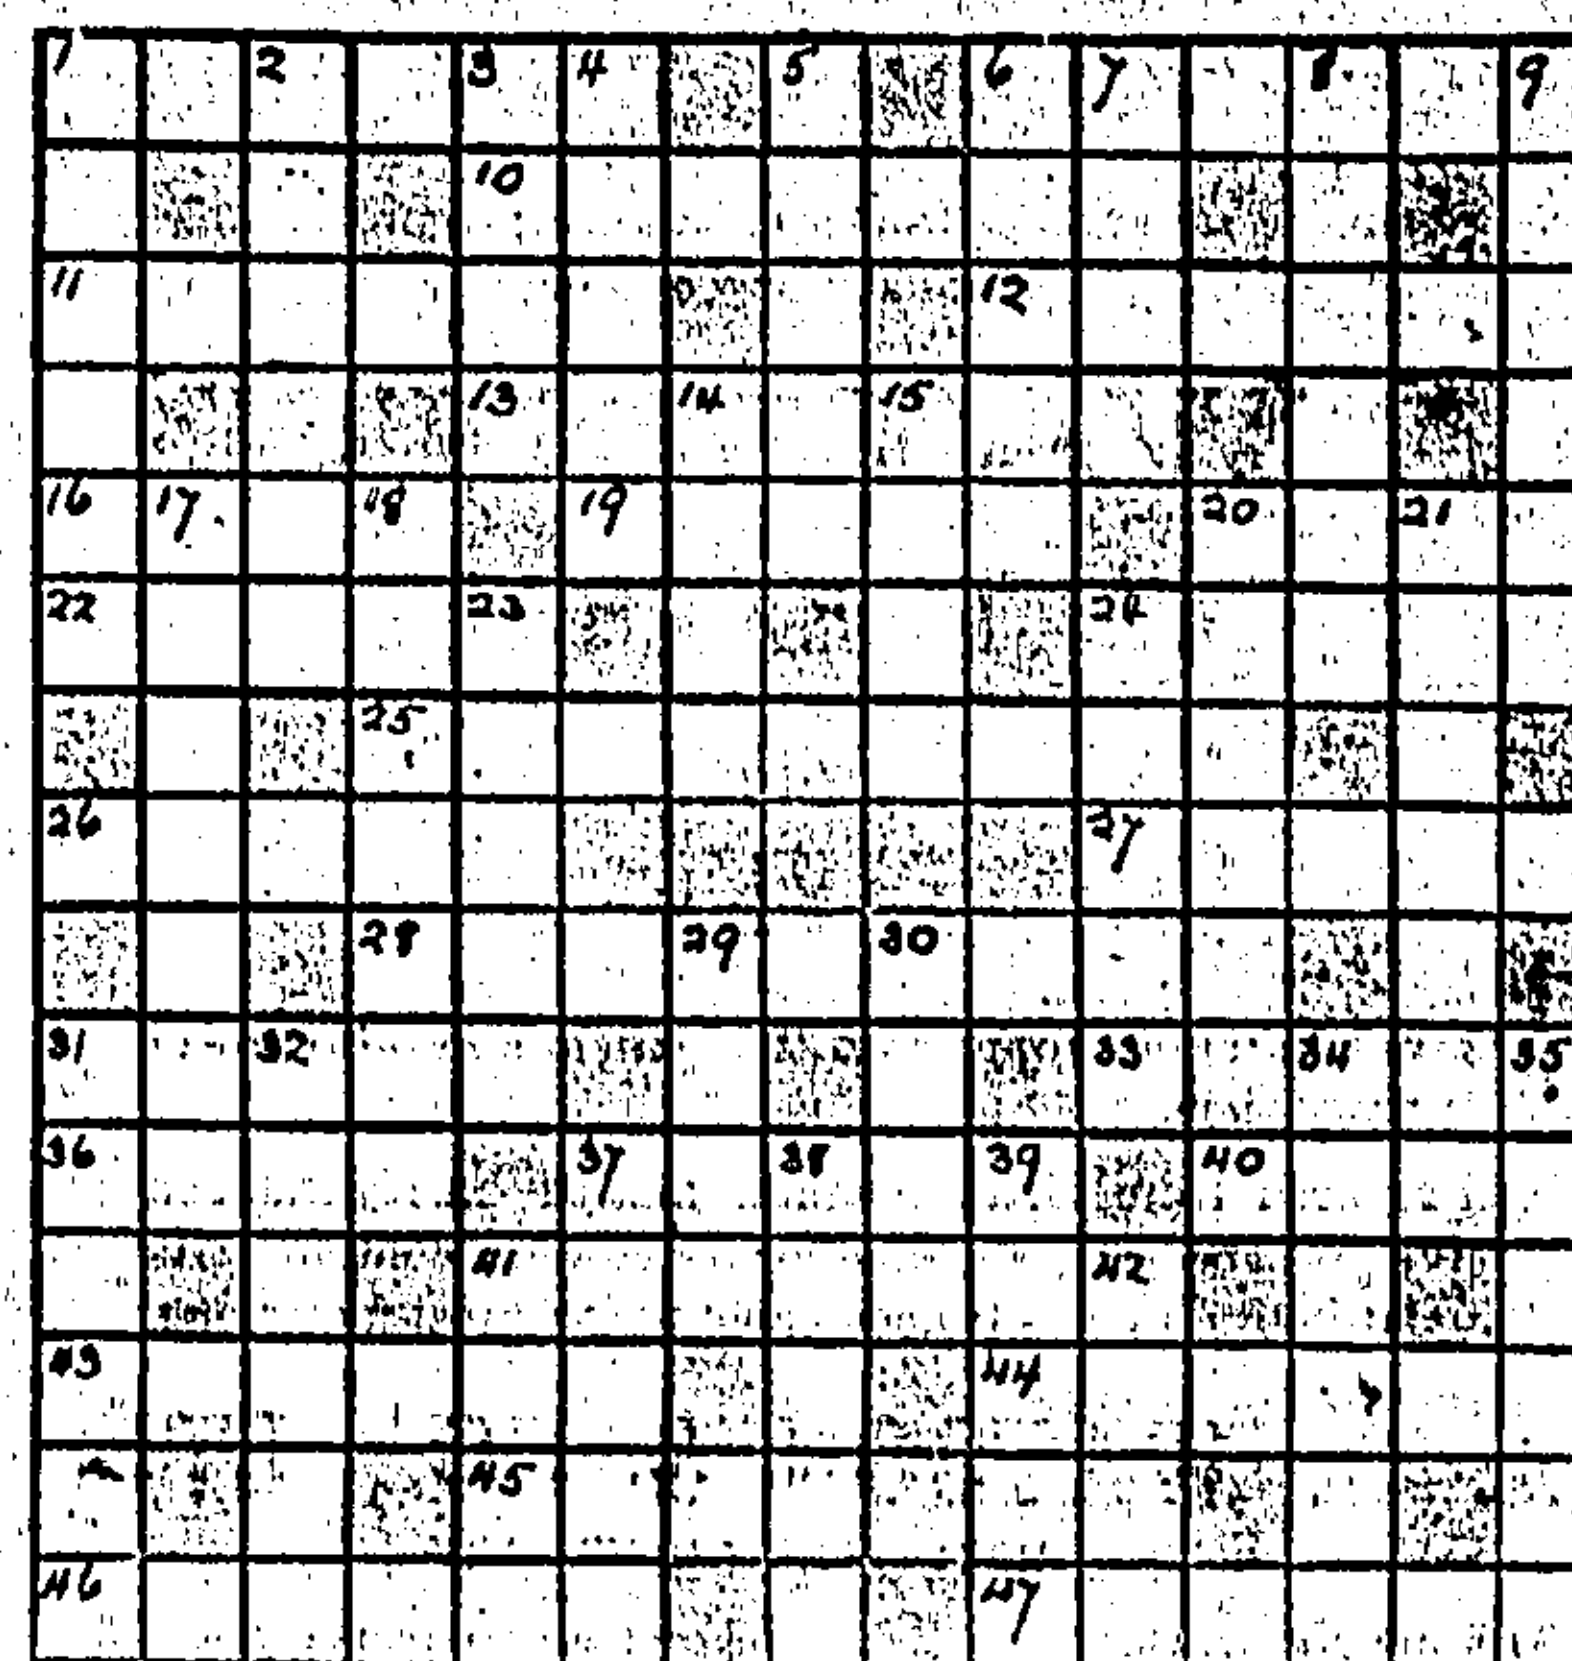 1 2 3 4 5 6 7 8 9
10
11 12
13 14 15
16 17 18 19 20 21
22 23 24
25
26 27
28 29 30
31 32 33 34 35
36 37 38 39 40
41 42
43 44
45
46 47